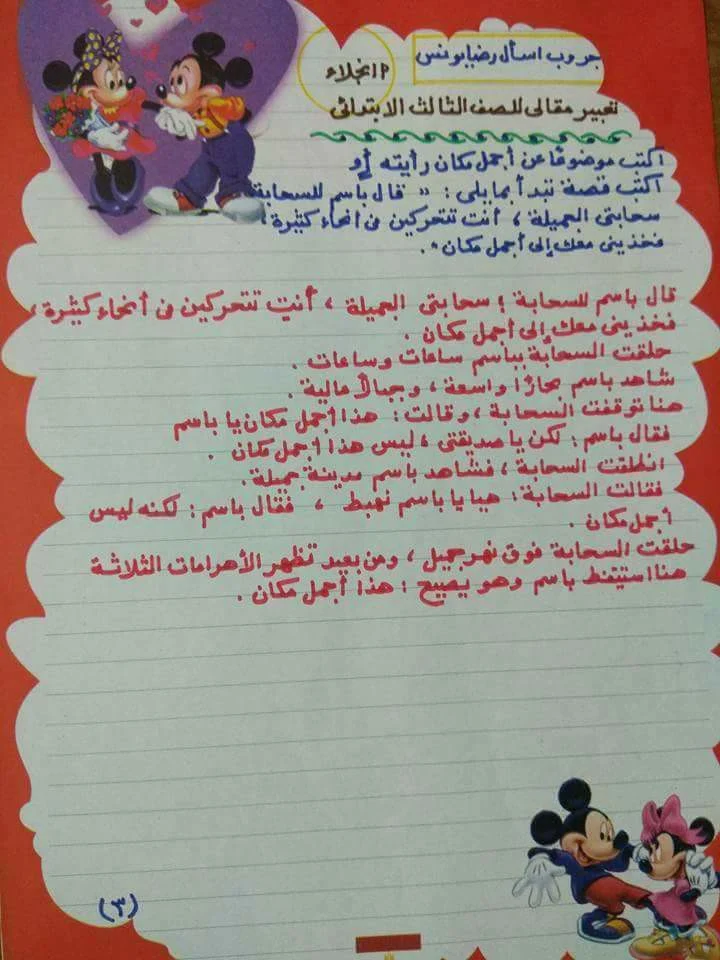 جروب اسأل رضا يونس
م/انجلاء
تعبير مقالى للصف الثالث الابتدائى
اكتب موضوعًا عن أجمل مكان رأيته أو
اكتب قصة تبدأ بما يلى : " قال باسم للسحابة
سحابتى الجميلة ، أنت تتحركين فى أنحاء كثيرة ،
فخذينى معك إلى أجمل مكان " .
قال باسم للسحابة : سحابتى الجميلة ، أنتِ تتحركين فى أنحاء كثيرة ،
فخذينى معك إلى أجمل مكان .
حلقت السحابة بباسم ساعات وساعات .
شاهد باسم بحارًا واسعة ، وجبالًا عالية .
هنا توقفت السحابة ، وقالت : هذا أجمل مكان يا باسم
فقال باسم : لكن يا صديقتى ، ليس هذا أجمل مكان .
انطلقت السحابة ، فشاهد باسم مدينة جميلة .
فقالت السحابة : هيا يا باسم نهبط ، فقال باسم : لكنه ليس
أجمل مكان .
حلقت السحابة فوق نهر جميل ، ومن بعيد تظهر الأهرامات الثلاثة
هنا استيقظ باسم وهو يصيح : هذا أجمل مكان .
(٣)